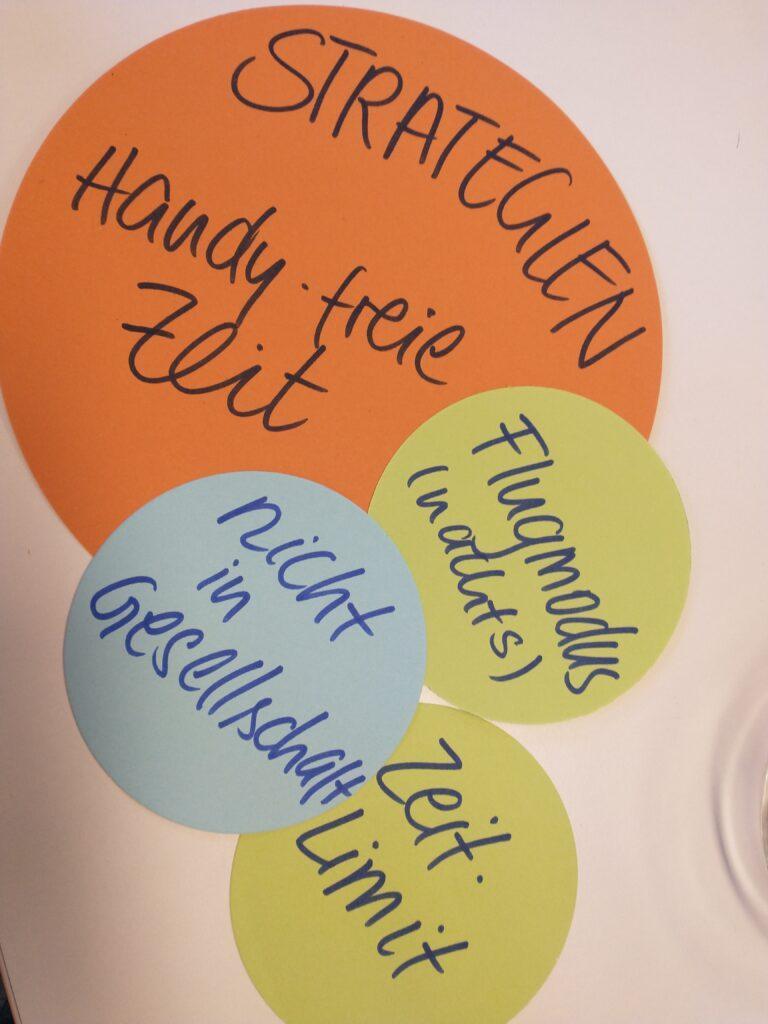 STRATEGIEN
Handy-freie
Zeit
Flugmodus
(nachts)
nicht
in
Gesellschaft
Zeit-
Limit